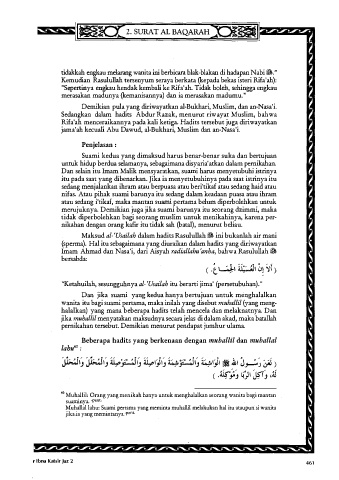 2. SURAT AL BAQARAH
tidakkah engkau melarang wanita ini berbicara blak-blakan di hadapan Nabi ﷺ."
Kemudian Rasulullah tersenyum seraya berkata (kepada bekas isteri Rifa'ah):
"Sepertinya engkau hendak kembali ke Rifa'ah. Tidak boleh, sehingga engkau
merasakan madunya (kemanisannya) dan ia merasakan madumu."
Demikian pula yang diriwayatkan al-Bukhari, Muslim, dan an-Nasa'i.
Sedangkan dalam hadits Abdur Razak, menurut riwayat Muslim, bahwa
Rifa'ah menceraikannya pada kali ketiga. Hadits tersebut juga diriwayatkan
jama'ah kecuali Abu Dawud, al-Bukhari, Muslim dan an-Nasa'i.
Penjelasan :
Suami kedua yang dimaksud harus benar-benar suka dan bertujuan
untuk hidup berdua selamanya, sebagaimana disyaria'atkan dalam pernikahan.
Dan selain itu Imam Malik mensyaratkan, suami harus menyetubuhi istrinya
itu pada saat yang dibenarkan. Jika ia menyetubuhinya pada saat istrinya itu
sedang menjalankan ihram atau berpuasa atau beri'tikaf atau sedang haid atau
nifas. Atau pihak suami barunya itu sedang dalam keadaan puasa atau ihram
atau sedang i'tikaf, maka mantan suami pertama belum diperbolehkan untuk
merujuknya. Demikian juga jika suami barunya itu seorang dzimmi, maka
tidak diperbolehkan bagi seorang muslim untuk menikahinya, karena per-
nikahan dengan orang kafir itu tidak sah (batal), menurut beliau.
Maksud al-'Usailah dalam hadits Rasulullah ﷺ ini bukanlah air mani
(sperma). Hal itu sebagaimana yang diuraikan dalam hadits yang diriwayatkan
Imam Ahmad dan Nasa'i, dari Aisyah radiallahu'anha, bahwa Rasulullah ﷺ
bersabda:
( أَلاَ إِنَّ الْعُسَيْلَةَ الْجِمَاعُ. )
"Ketahuilah, sesungguhnya al-'Usailah itu berarti jima' (persetubuhan)."
Dan jika suami yang kedua hanya bertujuan untuk menghalalkan
wanita itu bagi suami pertama, maka inilah yang disebut muhallil (yang meng-
halalkan) yang mana beberapa hadits telah mencela dan melaknatnya. Dan
jika muhallil menyatakan maksudnya secara jelas di dalam akad, maka batallah
pernikahan tersebut. Demikian menurut pendapat jumhur ulama.
Beberapa hadits yang berkenaan dengan muhallil dan muhallal
lahu⁴⁵ :
( لَعَنَ رَسُولُ اللهِ ﷺ الْوَاشِمَةَ وَالْمُسْتَوْشِمَةَ وَالْوَاصِلَةَ وَالْمُسْتَوْصِلَةَ وَالْمُحَلِّلَ وَالْمُحَلَّلَ
لَهُ، وَآكِلَ الرِّبَا وَمُوْكِلَهُ. )
⁴⁵ Muhallil: Orang yang menikah hanya untuk menghalalkan seorang wanita bagi mantan
suaminya.
Muhallal lahu: Suami pertama yang meminta muhallil melakukan hal itu ataupun si wanita
jika ia yang memintanya.
r Ibnu Katsir Juz 2
461